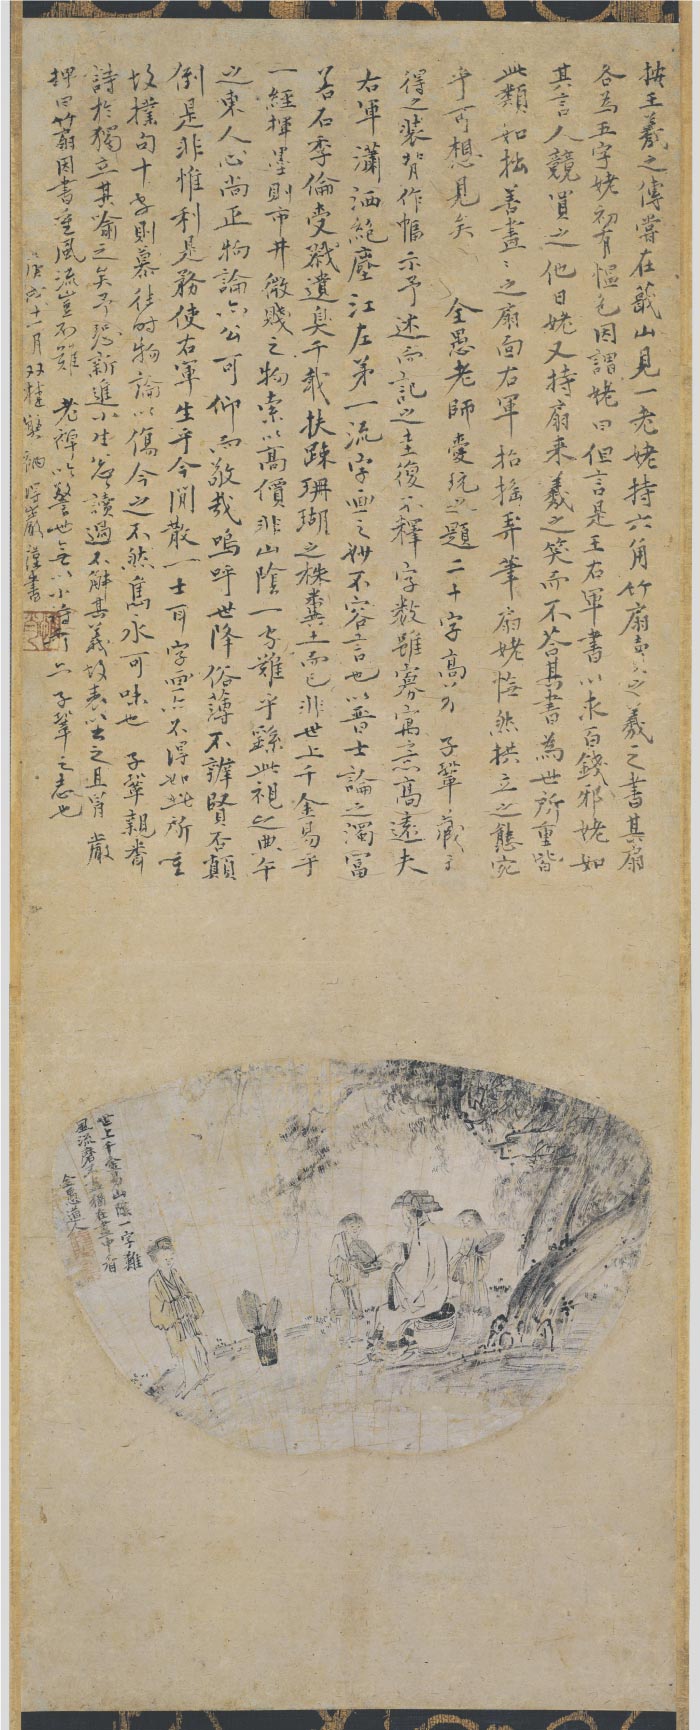 按王羲之傳嘗在蕺山見一老姥持六角竹扇賣之羲之書其扇
各為五字姥初有慍色因謂姥曰但言是王右軍書以求百錢邪姥如
其言人競買之他日姥又持扇来羲之笑而不荅其書為世所重皆
此類如拙善畫之扇面右軍拈搖弄筆扇姥恠然拱立之態宛
乎可想見矣 全愚老師愛玩之題二十字高 子鞏藏
得之裝背作幅示予述而記之圭復不釋字数雖寡寓意高遠夫
右軍瀟洒絶塵江左第一流字畫之妙不容言也以晋士論之濁冨
若石季倫受戮遺臭千載扶踈珊瑚之株糞土而已非世上千金易乎
一經揮墨則市井微賤之物索以高價非山陰一字難乎繇此視之典午
之東人心尚正物論亦公可仰而敬哉嗚呼世降俗薄不辨賢否顛
倒是非惟利是務使右軍生乎今閒散一士耳字而亦不得如此所重
故撲句十字則慕徃時物論以傷今之不然雋永可味也 子鞏親
詩於獨立其喻之矣予恐新進小生忽讀過不解其義故表以出之且胥 嚴
押曰竹扇因書重風流豈不難 老禪以警世 子鞏之志也
戊戌十一月双桂 惟嚴謹書
世上千金易山陰一字難
風流 猶在畫中看
全愚道人